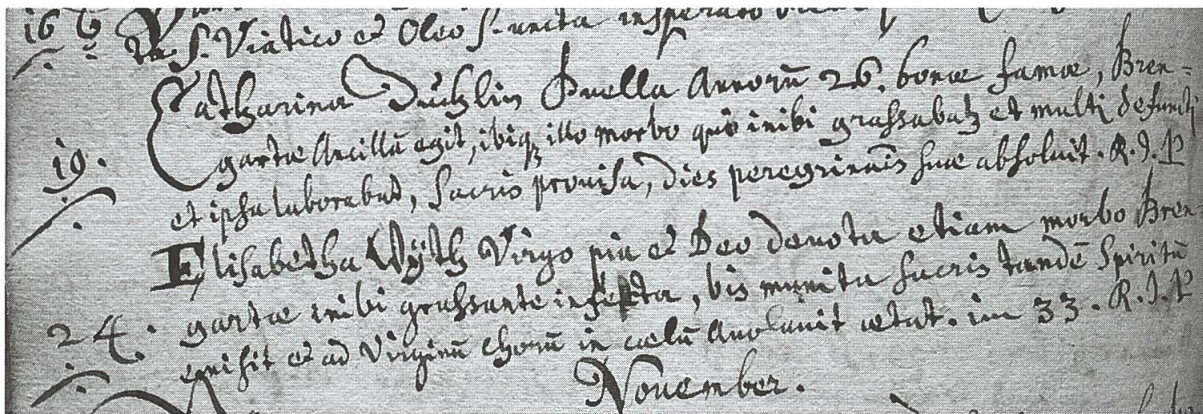 S. Viatico et Oleo S. uncta insperato
19. Catharina Dublin Puella Annorū 26. bonæ famæ, Bren=
gartæ Ancillā egit, ibiq₃ illo morbo quo inibi grassabat₃ et multi defuncti
et ipsa laborabat, Sacris provisa, dies peregrinaōis suæ absoluit. R. I. P
Elisabetha Wÿth Virgo pia et Deo devota etiam morbo Bren
24. gartæ inibi grassante infecta, bis munita sacris tandē Spiritū
emisit et ad Virginū chorū in cælū Auolauit ætat. im 33. R. I. P
November.